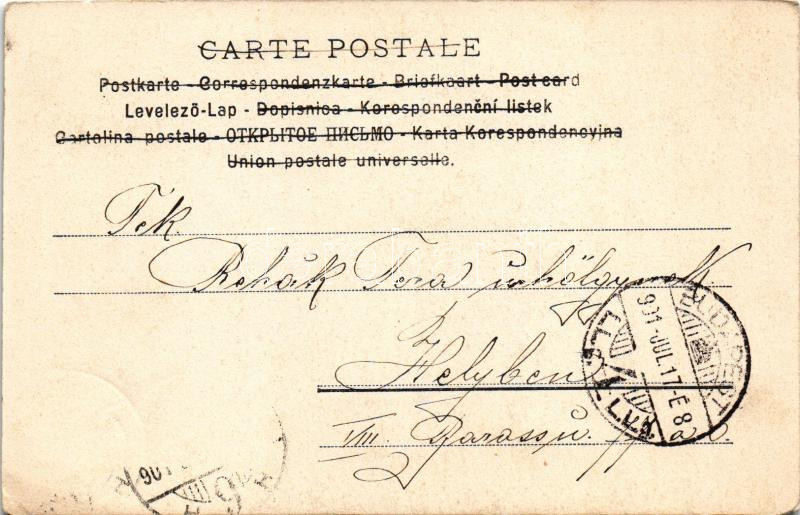 CARTE POSTALE
Postkarte - Correspondenzkarte - Briefkaart - Post card
Levelező-Lap - Dopisnica - Korespondenční listek
Cartolina postale - ОТКРЫТОЕ ПИСЬМО - Karta Korespondencyjna
Union postale universelle.
Rehák Tera úrhölgynek
Helyben
901-JUL.17-E8
BUDAPEST